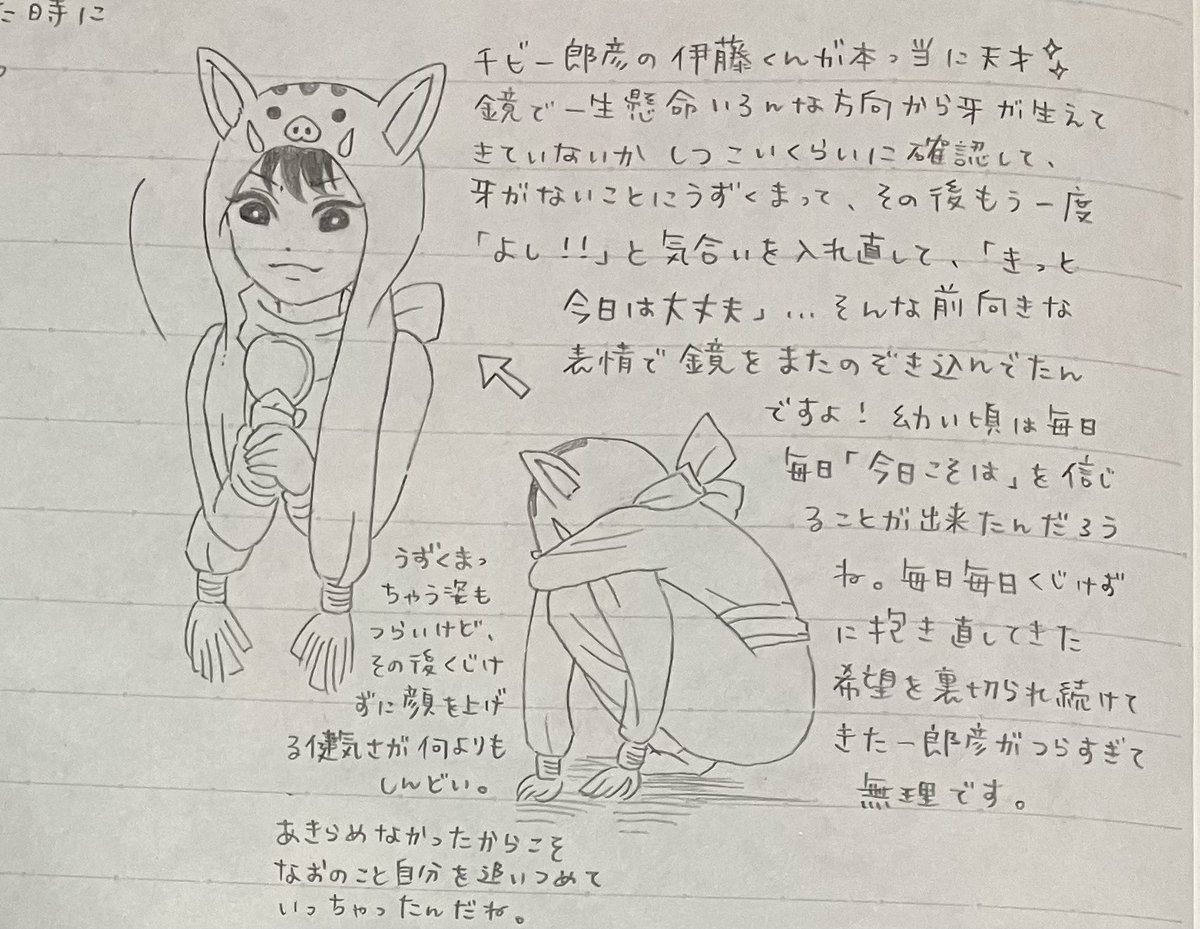 た時に
チビ一郎彦の伊藤くんが本っ当に天才
鏡で一生懸命いろんな方向から牙が生えて
きていないかしつこいくらいに確認して、
牙がないことにうずくまって、その後もう一度
「よし!!」と気合いを入れ直して、「きっと
今日は大丈夫」…そんな前向きな
表情で鏡をまたのぞき込んでたん
ですよ!幼い頃は毎日
毎日「今日こそは」を信じ
ることが出来たんだろう
ね。毎日毎日くじけず
に抱き直してきた
希望を裏切られ続けて
きた一郎彦がつらすぎて
無理です。
うずくまっ
ちゃう姿も
つらいけど、
その後くじけ
ずに顔を上げ
る健気さが何よりも
しんどい。
あきらめなかったからこそ
なおのこと自分を追いつめて
いっちゃったんだね。